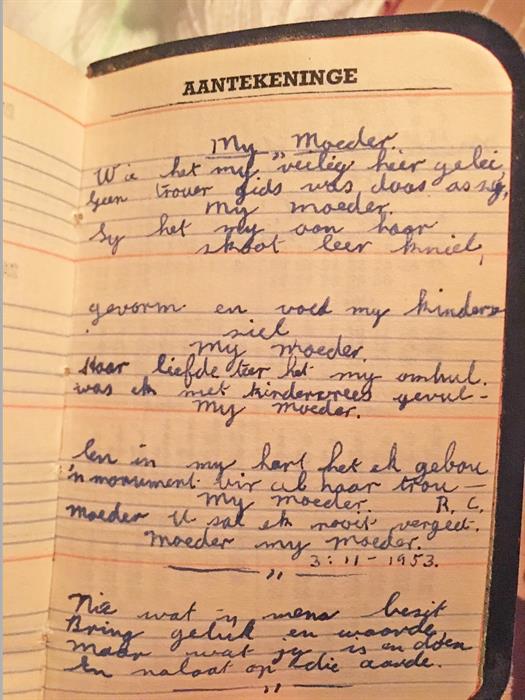 AANTEKENINGE
My Moeder.
Wie het my "veilig hier gelei,
Geen trouer gids was daar as sy,
My moeder.
Sy het my aan haar
skoot leer kniel,
gevorm en voed my kinders
siel
My moeder.
Haar liefde teer het my omhul.
was ek met kindervrees gevul -
My moeder.
En in my hart het ek gebou
'n monument vir al haar trou —
My moeder. R. C.
Moeder U sal ek nooit vergeet.
Moeder my moeder.
3:11-1953.
"
Nie wat 'n mens besit
Bring geluk en waarde,
Maar wat jy is en doen
En nalaat op die aarde.
"